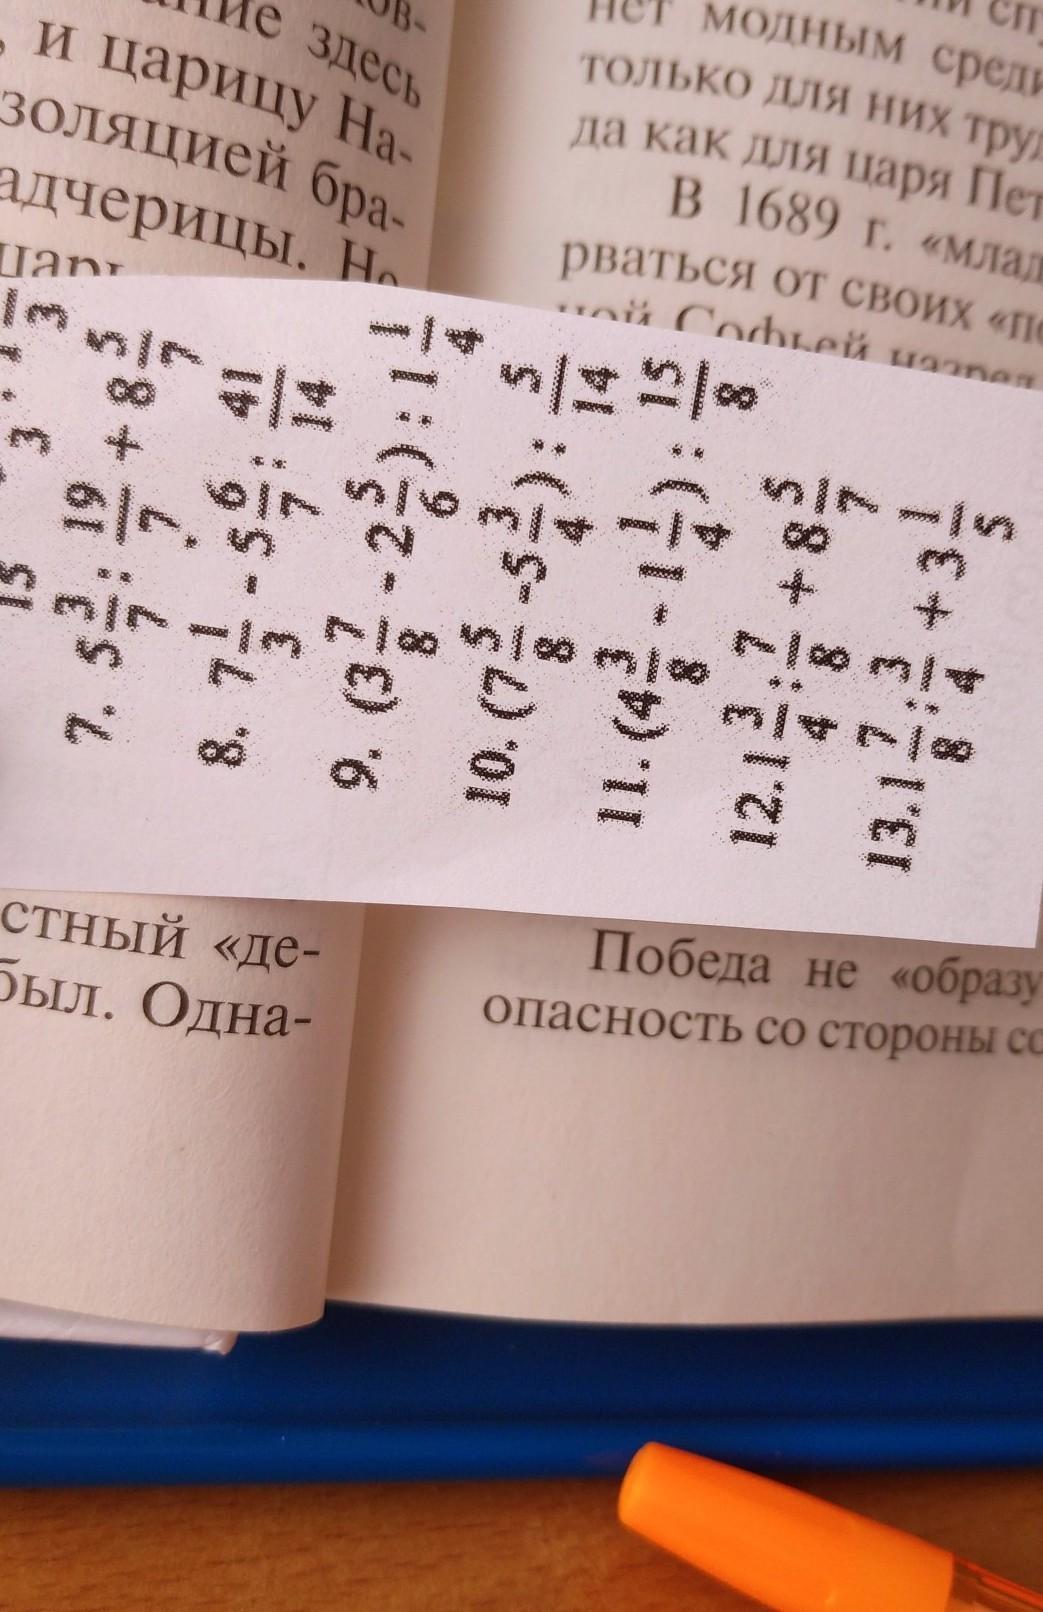 здесь
, и царицу На-
золяцией бра-
адчерицы. Но
нет модным среди
только для них
да как для царя
В 1689 г. «млад
рваться от своих
ной Софьей
15 3 : 1 1/3
7. 5 3/7 : 19/7 + 8 5/7
8. 7 1/3 - 5 6/7 : 41/14
9. (3 7/8 - 2 5/6) : 1 1/4
10. (7 5/8 -5 3/4) : 5/14
11. (4 3/8 - 1 1/4) : 15/8
12. 1 3/4 : 7/8 + 8 5/7
13. 1 7/8 : 3/4 + 3 1/5
стный «де-
был. Одна-
Победа не «образу
опасность со стороны со